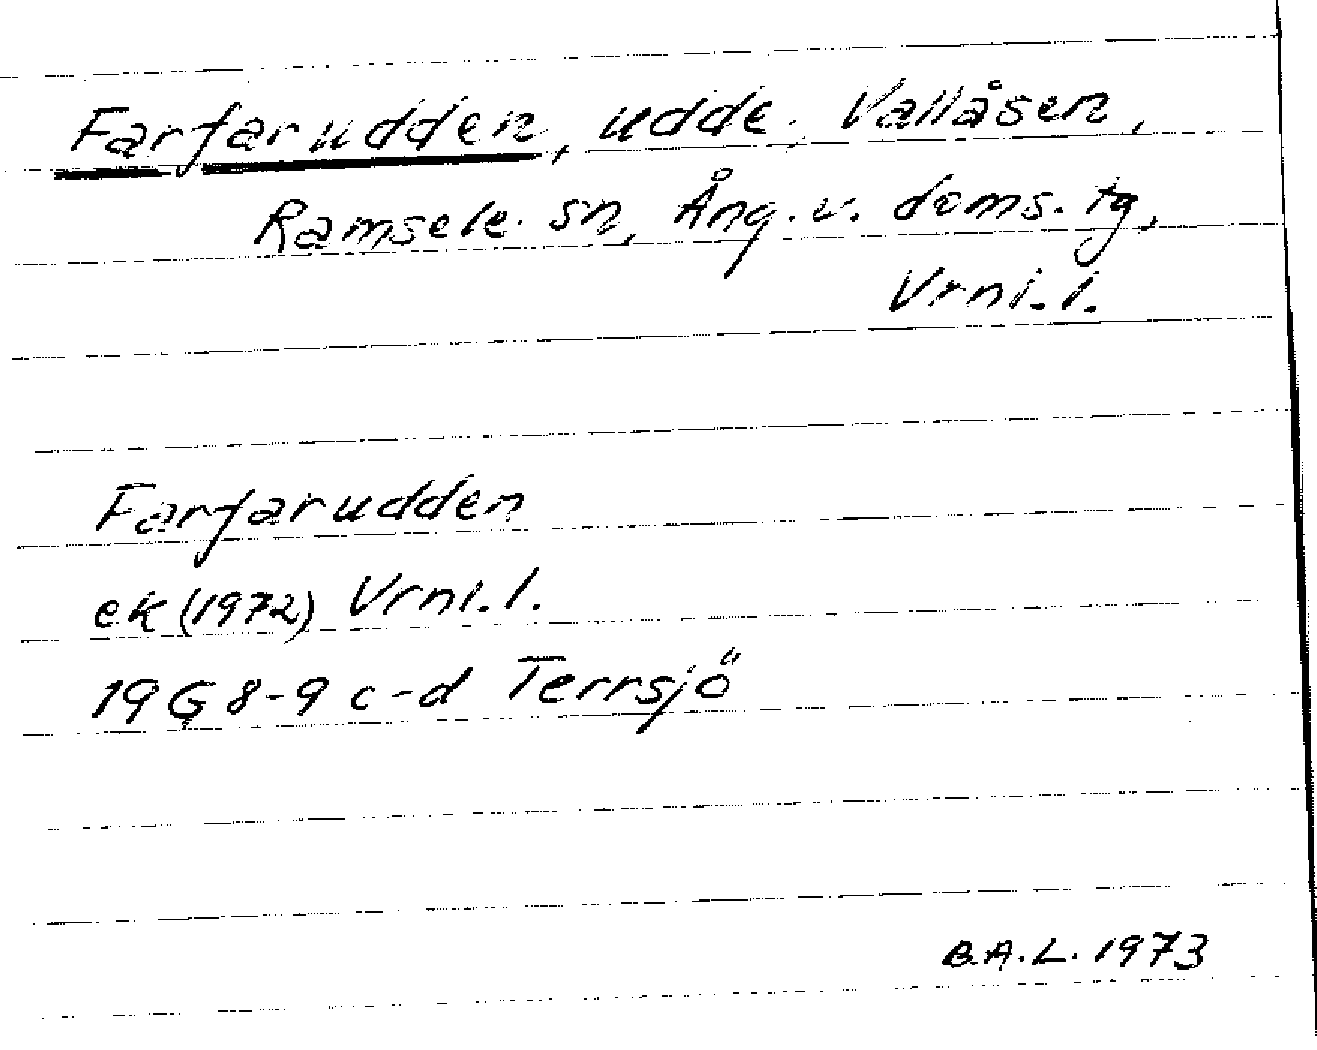 Farfarudden, udde, Vallåsen,
Ramsele sn, Ång. v. doms. tg,
Vrni. l.
Farfarudden
ek (1972) Vrni. l.
19 G 8-9 c-d Terrsjö
B.A.L. 1973